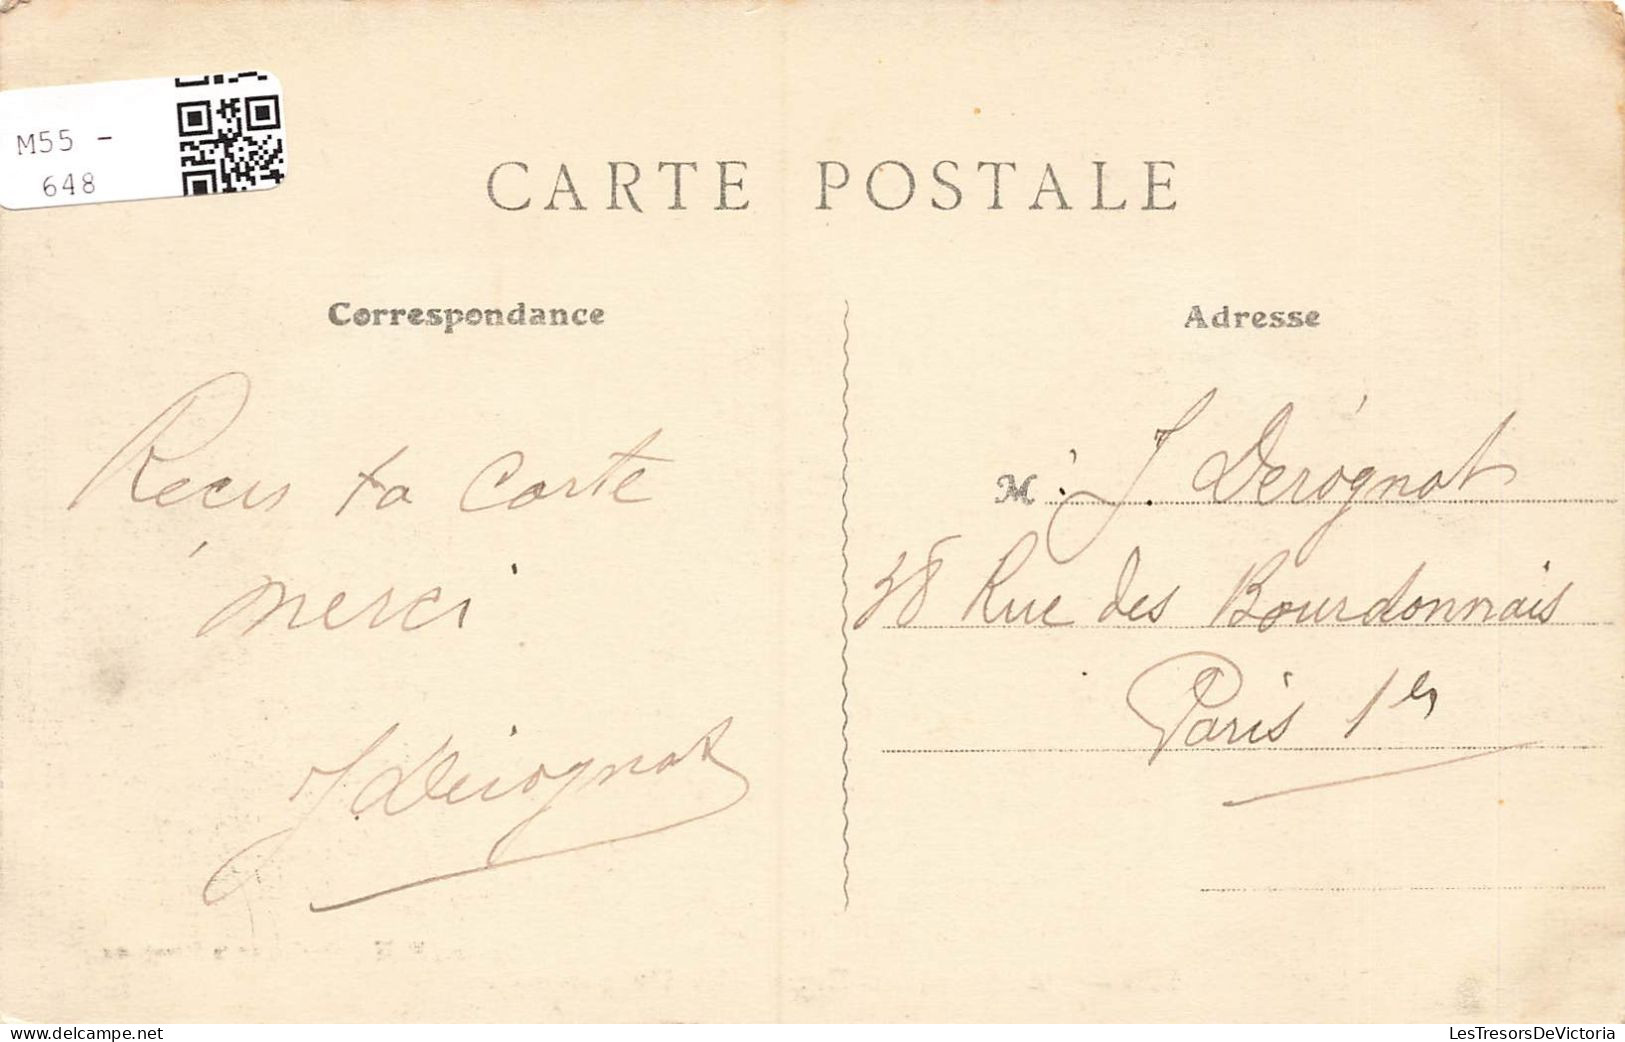 M55 -
648
CARTE POSTALE
Correspondance
Reçus ta carte
merci
J. Derognat
Adresse
M. J. Derognat
38 Rue des Bourdonnais
Paris 1er
LesTresorsDeVictoria